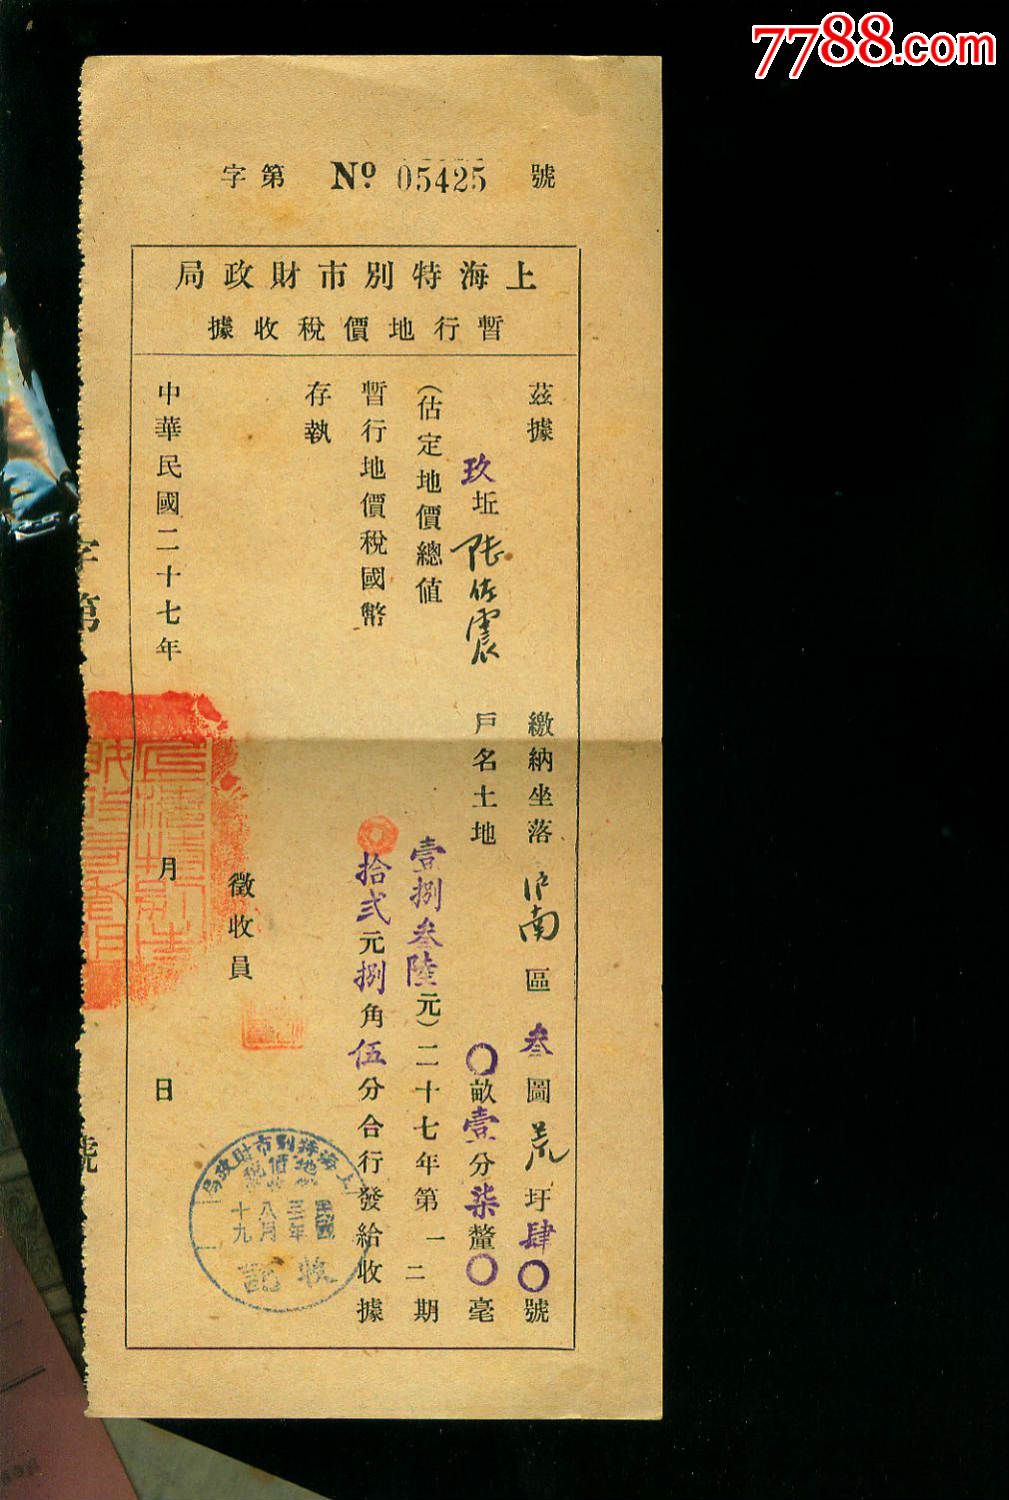 7788.com
字第 № 05425 號
上海特別市財政局
暫行地價稅收據
茲據 繳納坐落滬南區叁圖荒圩肆〇號
玖坵張佐震 戶名土地 〇畝壹分柒釐〇毫
(估定地價總值 壹捌叁陸元)二十七年第一二期
暫行地價稅國幣 拾弍元捌角伍分合行發給收據
存執
徵收員
中華民國二十七年 月 日
字第 號
上海特別市財政局
地價稅
民國
三年
八月
十九
收記